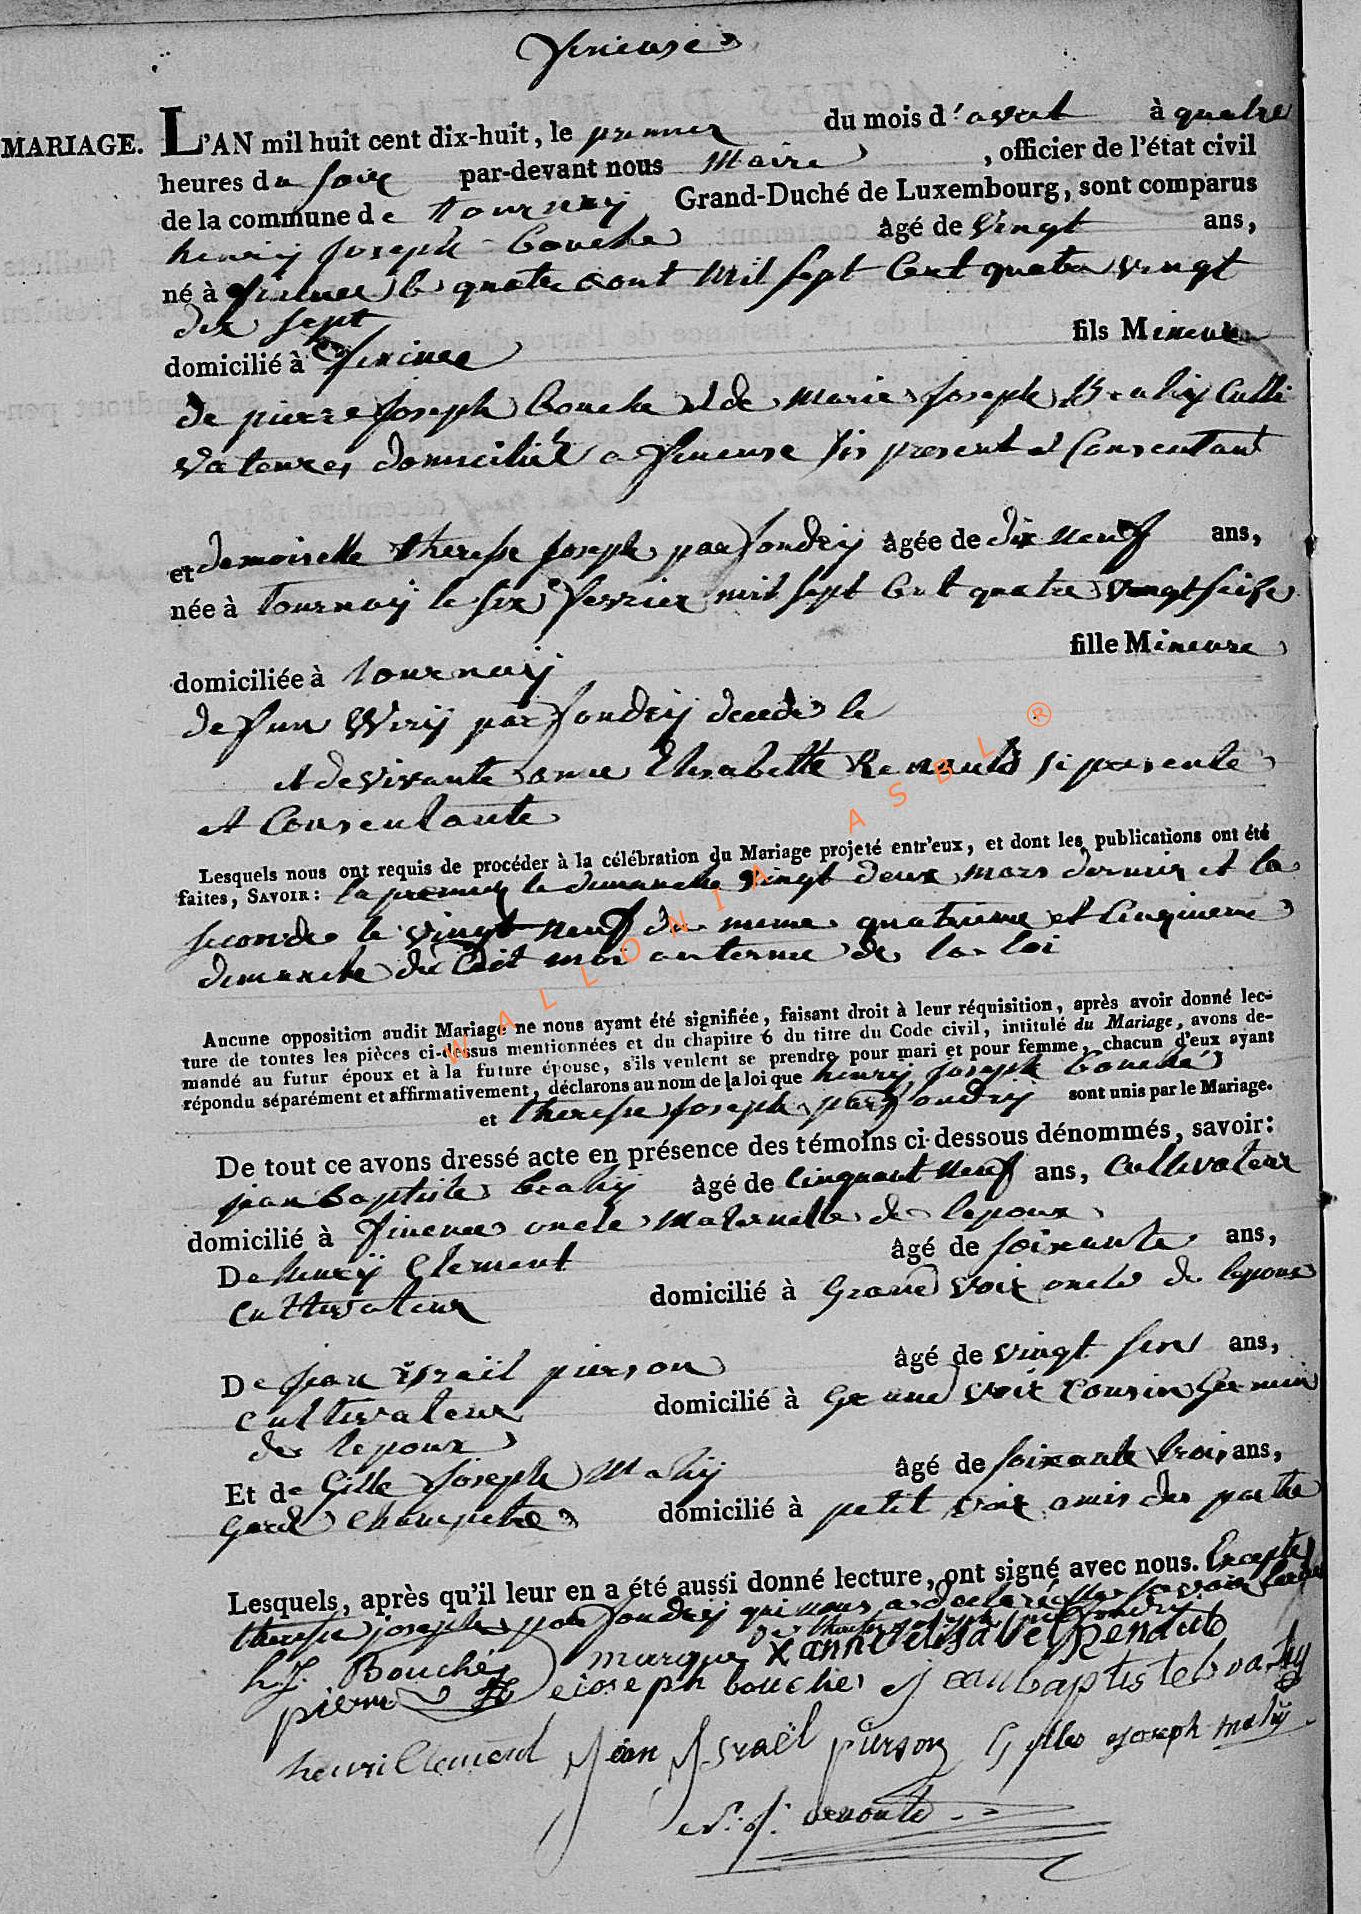 Verieuse
MARIAGE. L'AN mil huit cent dix-huit, le premier du mois d'avril à quatre
heures du soir par-devant nous Maire, officier de l'état civil
de la commune de tournay Grand-Duché de Luxembourg, sont comparus
henry joseph bouche âgé de vingt ans,
né à le quatre aout Mil sept Cent quatre vingt
dix sept
domicilié à fils Mineur
de pierre joseph bouche et de marie joseph Brahy Culti
vateures domiciliéz a present et Consentant
et demoiselle therese joseph parfondry âgée de dix neuf ans,
née à tournay le six fevrier mil sept Cent quatre vingt seise
fille Mineure
domiciliée à tournay
de feu Wery parfondry decede le
et de vivante anne Elisabette Renauld si presente
et Consentante
Lesquels nous ont requis de procéder à la célébration du Mariage projeté entr'eux, et dont les publications ont été
faites, SAVOIR : la premier le dimanche vingt deux mars dernier et la
seconde le vingt neuf du meme quatrieme et Cinquieme
dimanche du dit moi au terme de la loi
Aucune opposition audit Mariage ne nous ayant été signifiée, faisant droit à leur réquisition, après avoir donné lec-
ture de toutes les pièces ci-dessus mentionnées et du chapitre 6 du titre du Code civil, intitulé du Mariage, avons de-
mandé au futur époux et à la future épouse, s'ils veulent se prendre pour mari et pour femme, chacun d'eux ayant
répondu séparément et affirmativement, déclarons au nom de la loi que henry joseph bouché
et therese joseph parfondry sont unis par le Mariage.
De tout ce avons dressé acte en présence des témoins ci-dessous dénommés, savoir :
jean Baptiste brahy âgé de Cinquant neuf ans, Cultivateur
domicilié à oncle Maternelle de lepoux
De henry Clement âgé de soixante ans,
Cultivateur domicilié à Grand voir oncle de lepoux
De jean israël pierson âgé de vingt six ans,
Cultivateur domicilié à Grand voir Cousin Germin
de lepoux
Et de Gille joseph Mahy âgé de soixante trois ans,
Gard Champetre domicilié à petit voir amis des partie
Lesquels, après qu'il leur en a été aussi donné lecture, ont signé avec nous. Excepte
therese joseph parfondry qui nous a declaré
de therese joseph parfondry
h. J. Bouché marque X anne elisabet Rendub
pierre joseph bouche jean baptiste brahy
henri Clement Jean Israël pierson Gilles joseph mahy
renauld
WALLONIA ASBL ®